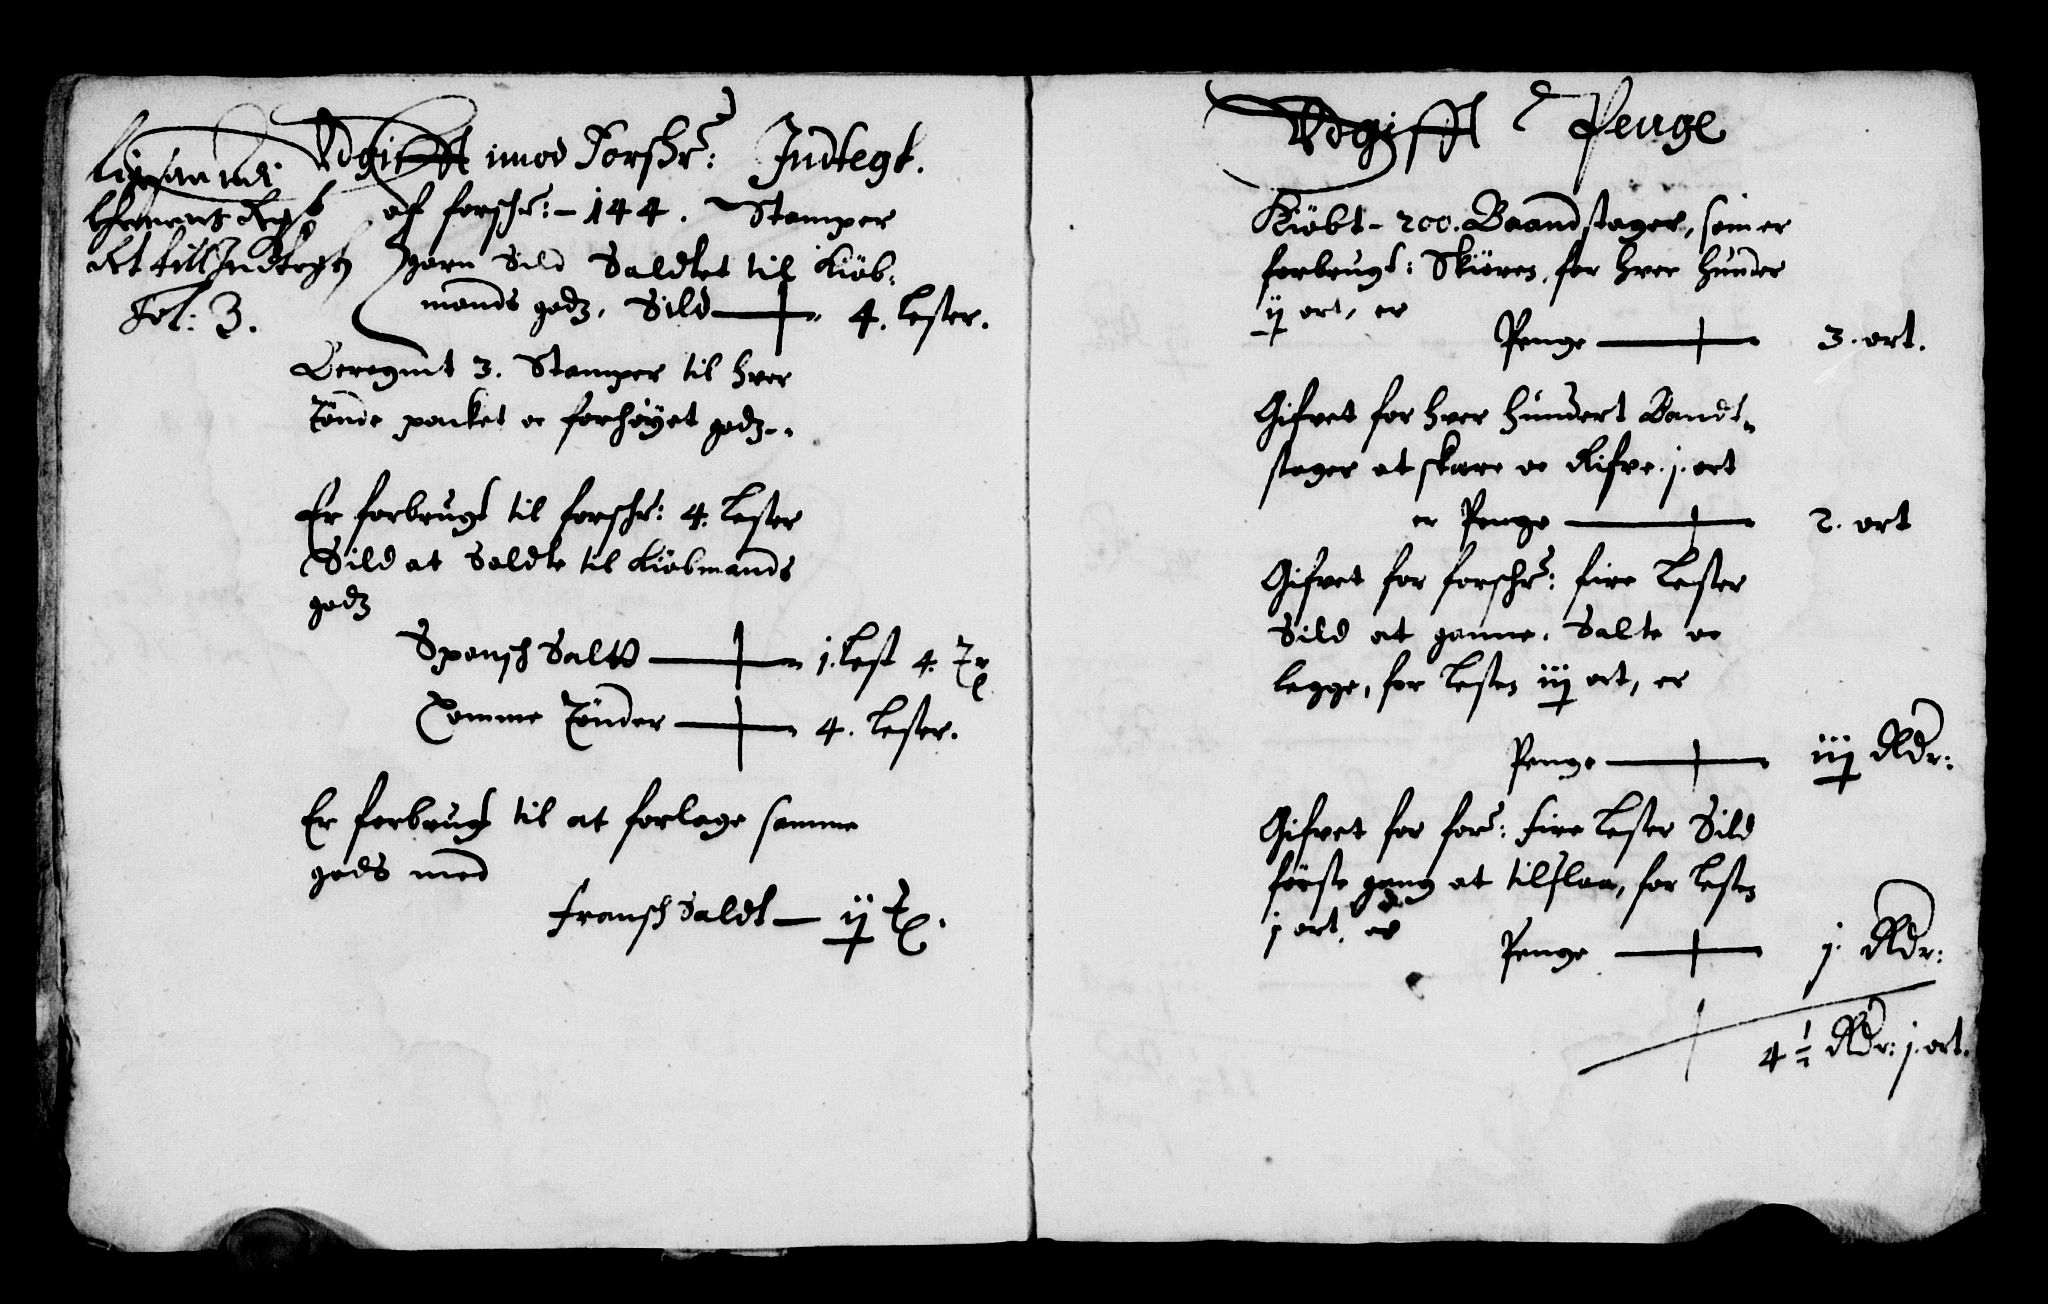 Udgifft imod Forschr: Indtegt.
af forschr: - 144. Stamper
garn Sild Saldtet til Kiøb-
mands godz, Sild 4. Lester.
det till Indtegh
Fol: 3.
Beregnit 3. Stamper til hver
Tønde packet oc forhøyet godz
Er forbrugt til forschr: 4. Lester
Sild at Saldte til Kiøbmands
godz
Spansch Saltt j. Lest 4. Tr
Tomme Tønder 4. Lester.
Er forbrugt til at forlage samme
gods med
Fransch Saldt ij Tr.
Udgifft Penge
Kiøbt - 200. Baandstager, som er
forbrugt: Skiøren, for hver hunder
ij ort, er
Penge 3. ort.
Gifvet for hver hundert Bandt-
stager at skære oc Rifve. j. ort
er Penge 2. ort
Gifvet for forschr: fire Lester
Sild at ganne, Salte oc
legge, for Lesten iij ort, er
Penge iij Rdr:
Gifvet for for: Fire Lester Sild
første gang at tilslaa, for Lesten
j ort, er
Penge j. Rdr:
4 1/2 Rdr: j. ort.